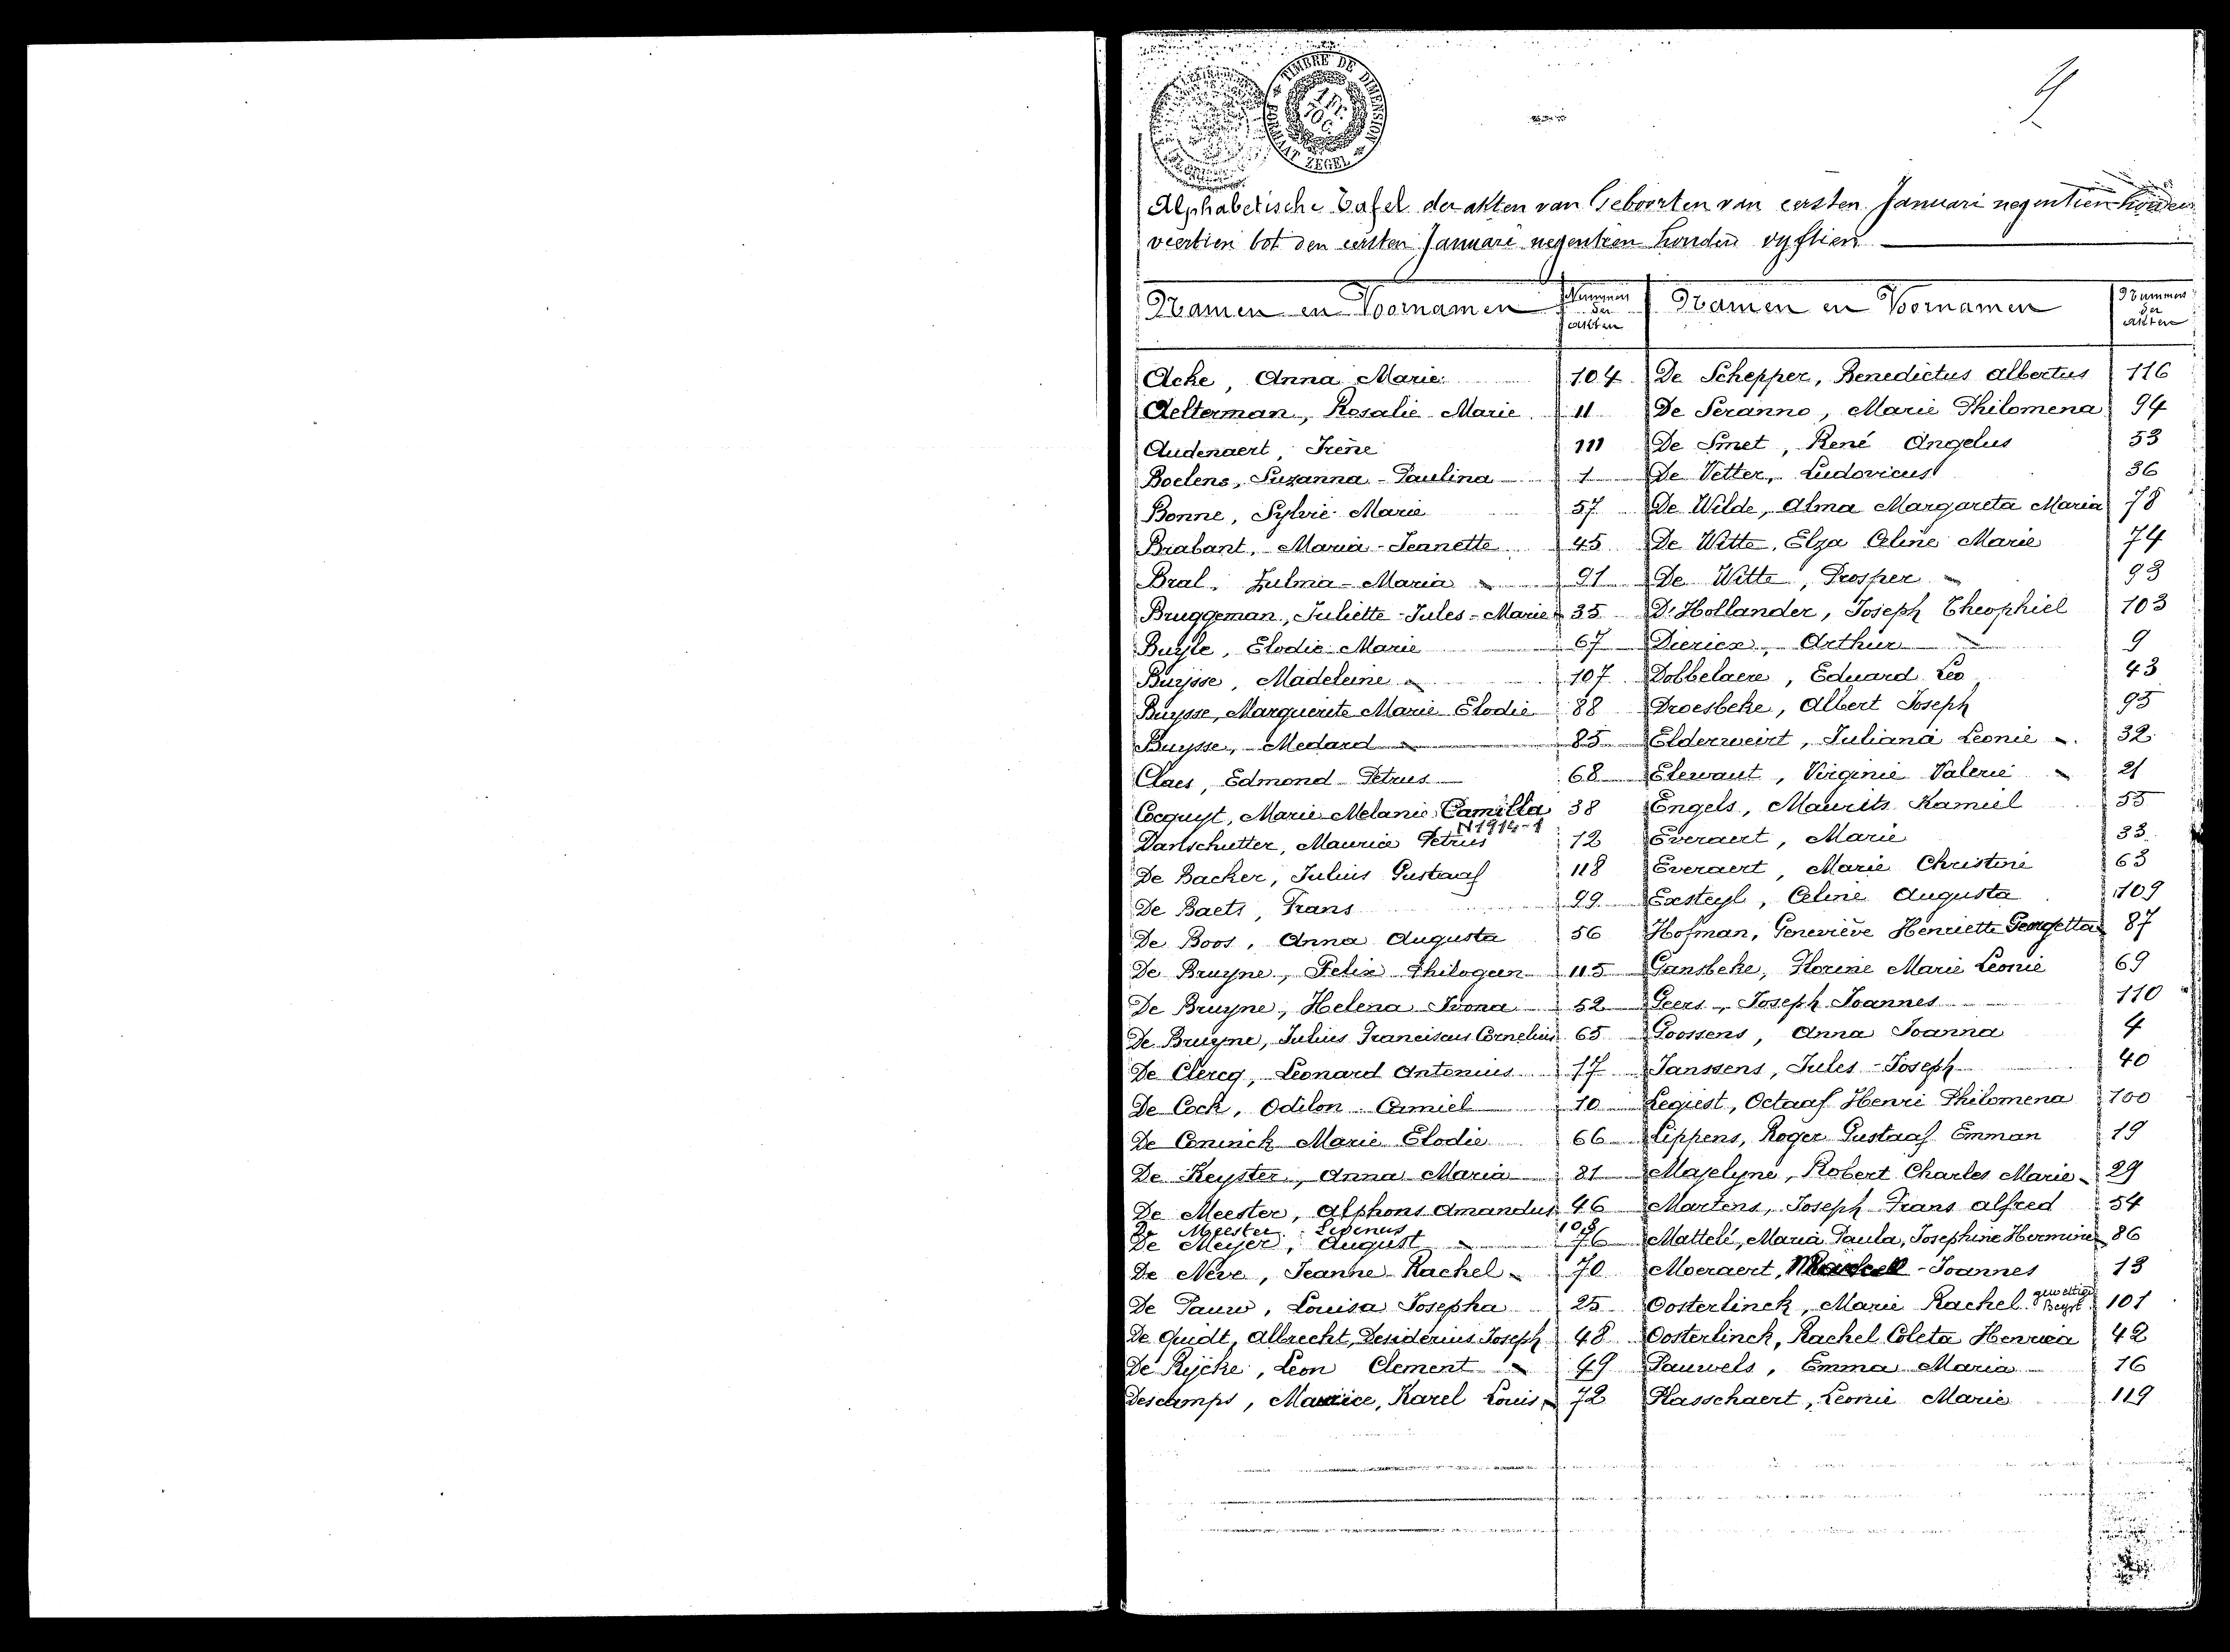 TIMBRE DE DIMENSION
1 Fr. 70 C.
FORMAAT ZEGEL
Alphabetische Tafel der akten van Geboorten van eersten Januari negentien honderd
veertien tot den eersten Januari negentien honderd vyftien
Namen en Voornamen | Nummers der akten | Namen en Voornamen | Nummers der akten
Acke, Anna Marie | 104 | De Schepper, Benedictus albertus | 116
Aelterman, Rosalie Marie | 11 | De Seranno, Marie Philomena | 94
Audenaert, Irène | 111 | De Smet, René Angelus | 53
Boelens, Suzanna-Paulina | 1 | De Vetter, Ludovicus | 36
Bonne, Sylvie Marie | 57 | De Wilde, Alma Margareta Maria | 78
Brabant, Maria-Jeanette | 45 | De Witte, Elza Celine Marie | 74
Bral, Zulma-Maria | 91 | De Witte, Prosper | 93
Bruggeman, Juliette-Jules-Marie | 35 | D'Hollander, Joseph Theophiel | 103
Buyle, Elodie Marie | 67 | Diericx, Arthur | 9
Buijsse, Madeleine | 107 | Dobbelaere, Eduard Leo | 43
Buysse, Marguerite Marie Elodie | 88 | Droesbeke, Albert Joseph | 95
Buysse, Medard | 85 | Elderweirt, Juliana Leonie | 32
Claes, Edmond Petrus | 68 | Elewaut, Virginie Valerie | 21
Cocquyt, Marie Melanie Camilla | 38 | Engels, Maurits Kamiel | 55
N1914-1
Danschutter, Maurice Petrus | 12 | Everaert, Marie | 33
De Backer, Julius Gustaaf | 118 | Everaert, Marie Christine | 63
De Baets, Frans | 99 | Exsteyl, Celine Augusta | 109
De Boos, Anna Augusta | 56 | Hofman, Geneviève Henriette Georgetta | 87
De Bruyne, Felix Philogeen | 115 | Gansbeke, Florine Marie Leonie | 69
De Bruyne, Helena Ivona | 52 | Geers, Joseph Joannes | 110
De Bruyne, Julius Franciscus Cornelius | 65 | Goossens, Anna Joanna | 4
De Clercq, Leonard Antonius | 17 | Janssens, Jules-Joseph | 40
De Cock, Odilon Camiel | 10 | Legiest, Octaaf Henri Philomena | 100
De Coninck Marie Elodie | 66 | Lippens, Roger Gustaaf Emman | 19
De Keyster, Anna Maria | 81 | Majelyne, Robert Charles Marie | 29
De Meester, Alphons Amandus | 46 | Martens, Joseph Frans alfred | 54
De Meester Livinus | 108
De Meyer, August | 76 | Mattelé, Maria Paula, Josephine Hermine | 86
De Neve, Jeanne Rachel | 70 | Moeraert, Marcell-Joannes | 13
De Pauw, Louisa Josepha | 25 | Oosterlinck, Marie Rachel gewettigd Beyst | 101
De Quidt, Albrecht, Desiderius Joseph | 48 | Oosterlinck, Rachel Coleta Henrica | 42
De Rijcke, Leon Clement | 49 | Pauwels, Emma Maria | 16
Descamps, Maurice, Karel Louis | 72 | Plasschaert, Leonie Marie | 119